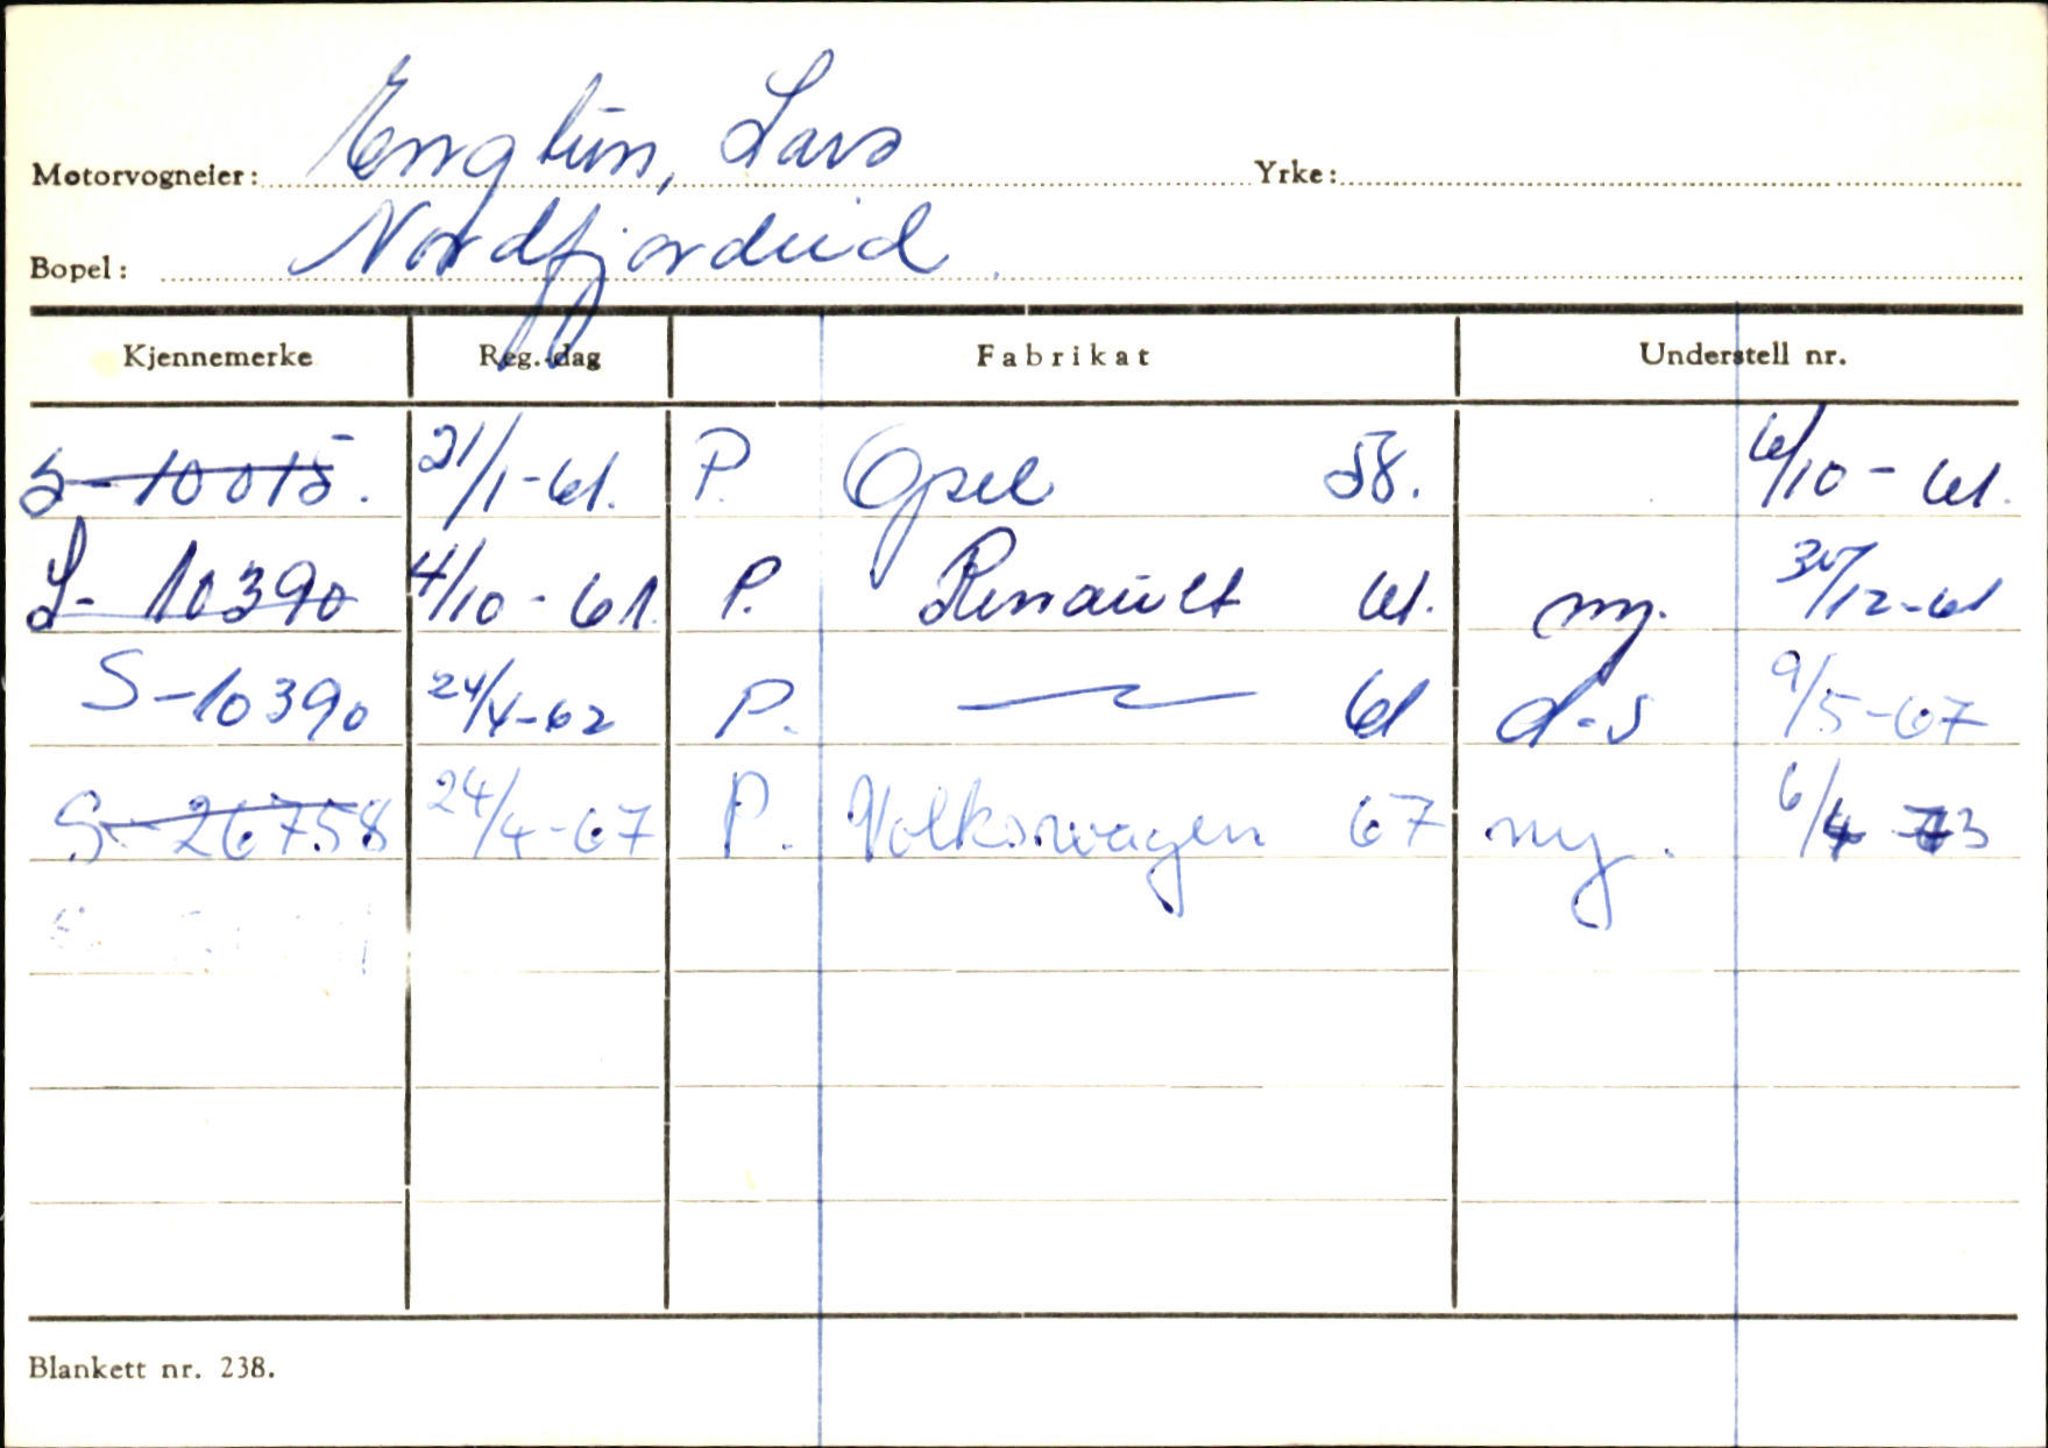 Motorvogneier: Engtun, Lars Yrke:
Bopel: Nordfjordeid.
Kjennemerke Reg.-dag Fabrikat Understell nr.
S-10015. 21/1-61. P. Opel 58. 6/10-61.
S-10390 4/10-61. P. Renault 61. ny. 30/12-61
S-10390 24/4-62 P. 61 d-s 9/5-67
S-26758 24/4-67 P. Volkswagen 67 ny. 6/4 73
Blankett nr. 238.